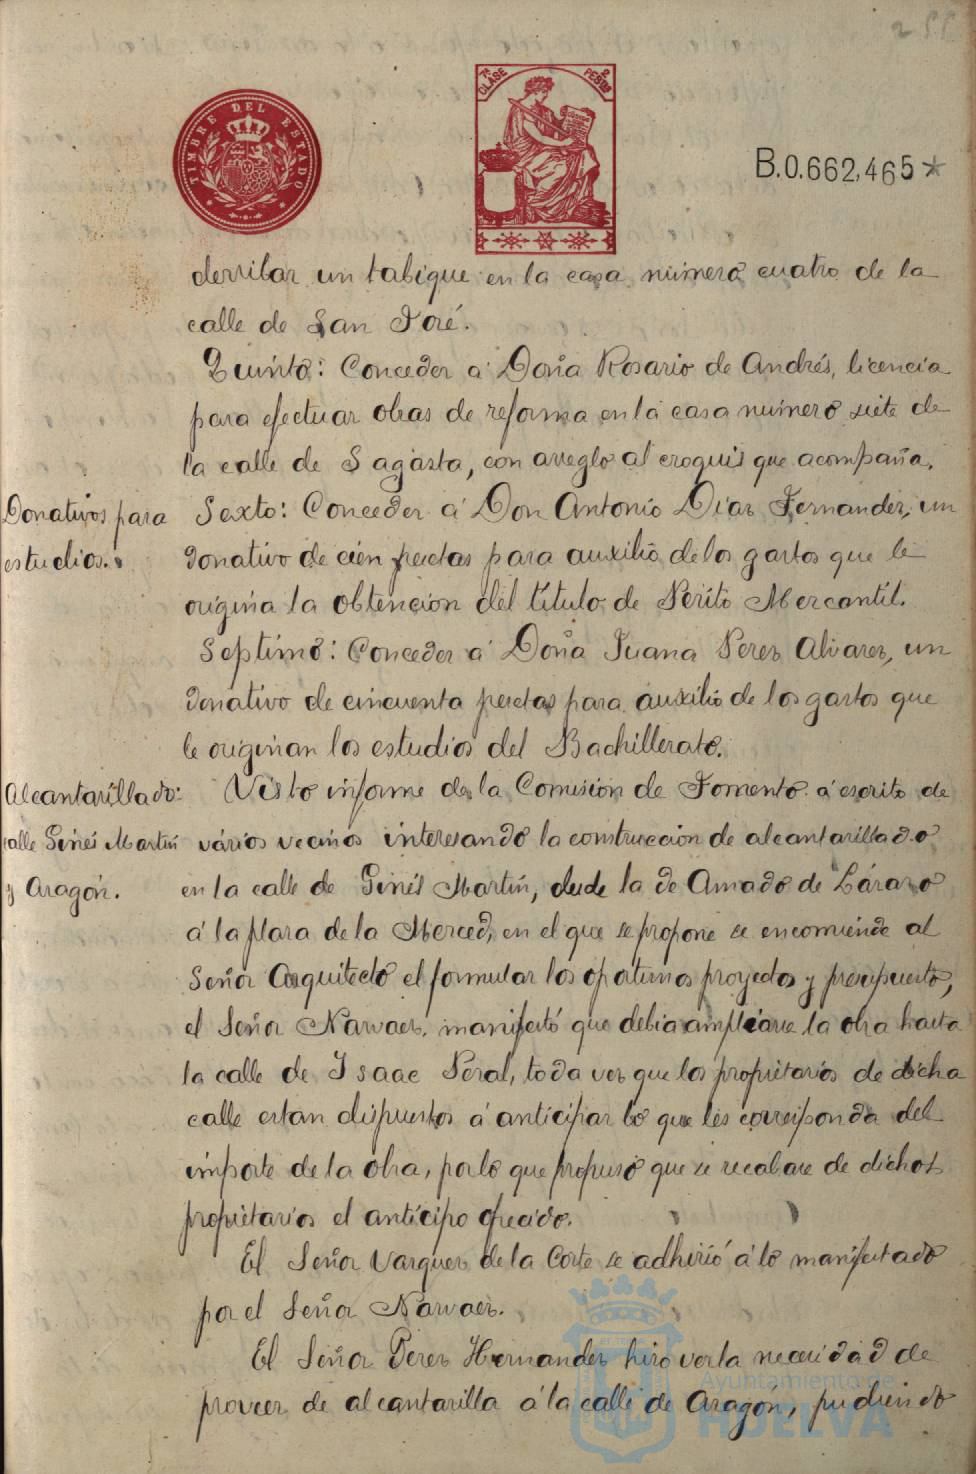 299
TIMBRE DEL ESTADO
7ª CLASE 2 PESTAS
B.0.662,465*
derribar un tabique en la casa número cuatro de la
calle de San José.
Quinto: Conceder á Doña Rosario de Andrés, licencia
para efectuar obras de reforma en la casa número siete de
la calle de Sagasta, con arreglo al croquis que acompaña.
Donativos para
estudios.
Sexto: Conceder á Don Antonio Díaz Fernandez, un
donativo de cien pesetas para auxilio de los gastos que le
origina la obtención del título de Périto Mercantíl.
Septimo: Conceder á Doña Juana Perez Alvarez, un
donativo de cincuenta pesetas para auxilio de los gastos que
le originan los estudios del Bachillerato.
Alcantarillado:
calle Ginés Martín
y Aragón.
Visto informe de la Comisión de Fomento á escrito de
vários vecinos interesando la construcción de alcantarillado
en la calle de Ginés Martín, desde la de Amado de Lázaro
á la plaza de la Merced, en el que se propone se encomiende al
Señor Arquitecto el formular los oportunos proyectos y presupuesto,
el Señor Narvaez, manifestó que debia ampliarse la obra hasta
la calle de Isaac Peral, toda vez que los propietarios de dicha
calle estan dispuestos á anticipar lo que les corresponda del
importe de la obra, por lo que propuso que se recabase de dichos
propietarios el anticipo ofrecido.
El Señor Vazquez de la Corte se adhirió á lo manifestado
por el Señor Narvaez.
El Señor Perez Hernandez hizo ver la necesidad de
proveer de alcantarilla á la calle de Aragón, pudiendo
Ayuntamiento de
HUELVA